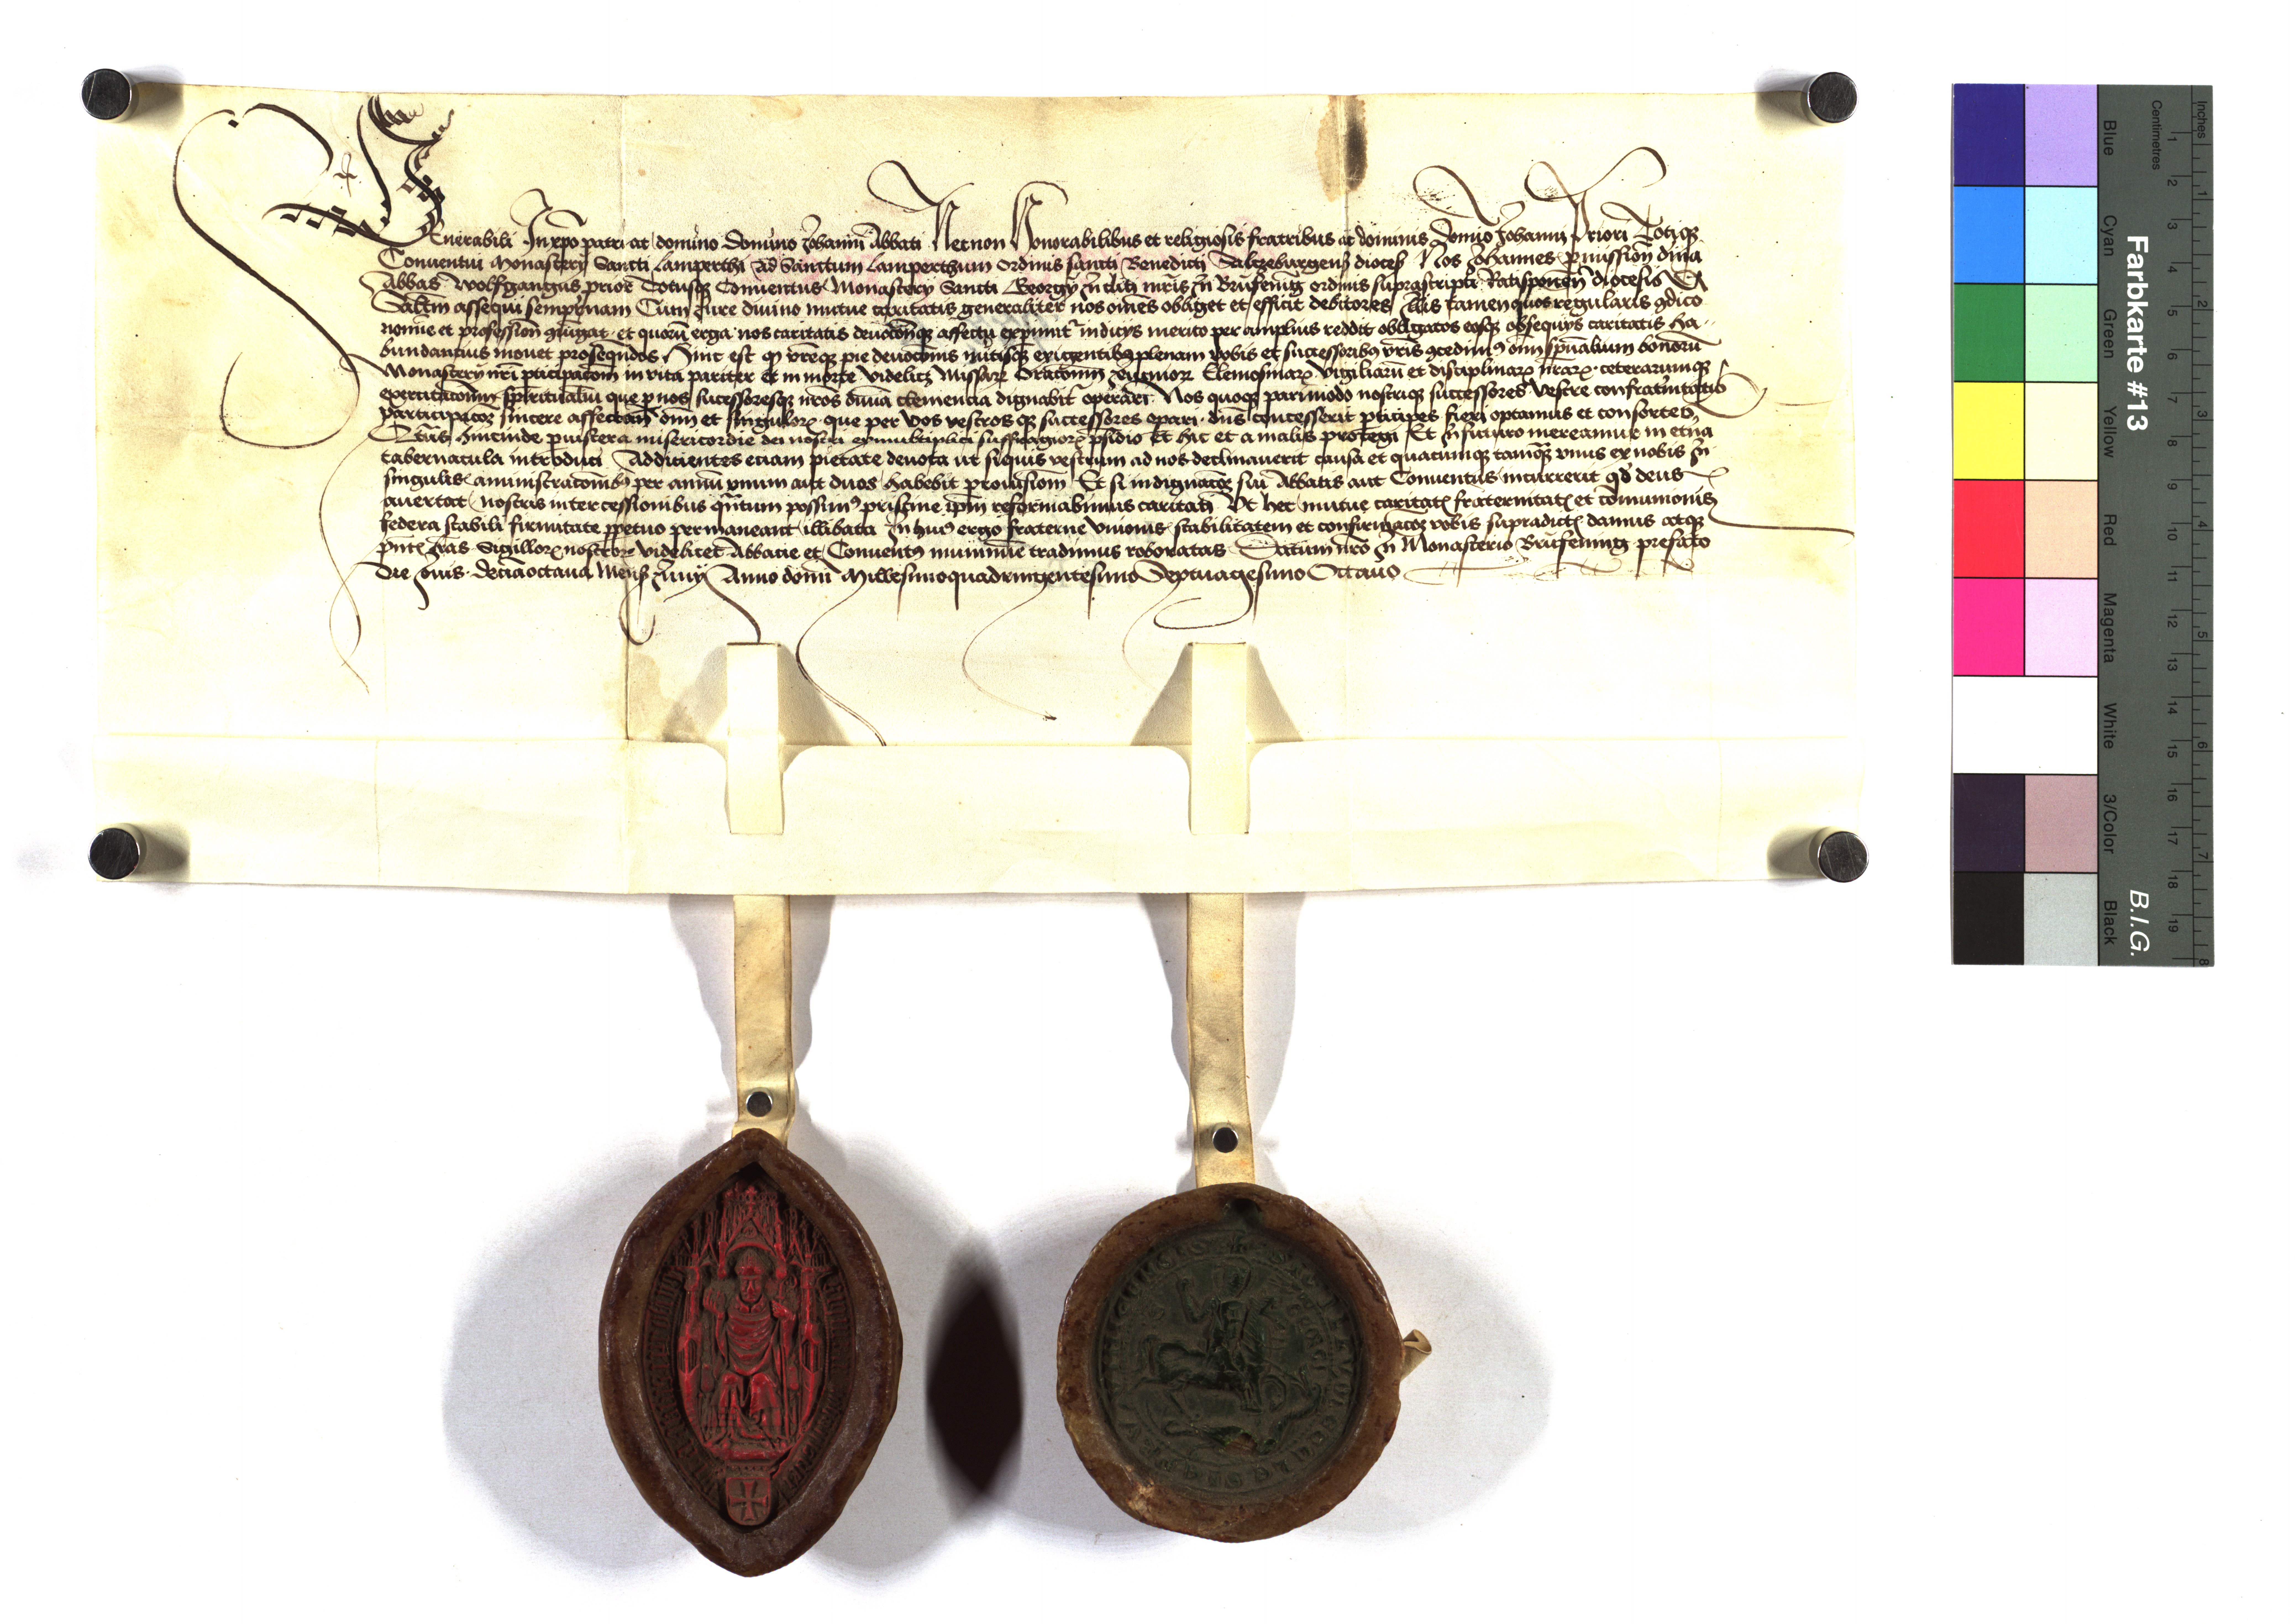 Venerabili In xpo patri ac domino domino Johanni Abbati Necnon Honorabilibus et religiosis fratribus ac dominis Domino Johanni Priori Totiqz
Conuentui Monastery Sancti Lamperthi Ad Sanctum Lamperthum Ordinis sancti Benedicti Saltzeburgens dioces Nos Johannes pmission diuina
Abbas Wolfgangus prior Totusqz Conuentus Monastery Sancti Georgy in Brufening ordinis suprascripti Ratisponen diocesis
Salutem assequi sempitnam Cum Jure diuino mutue caritatis generaliter nos omes obliget et efficit debitores Illis tamen quos regularis
nomie et profession et quorum erga nos caritatis deuotionqz affectu indicys merito per amplius reddit obligatos eosqz obsequys caritatis ha-
bundantius mouet prosequendos Hinc est q pie deuotionis exigentibus plenam vobis et successoribus vris concedimus omni spualium bonoru
Monastery nri pticipacom in vita pariter et in morte videlicz Missarum Oracionum Elemosinarum vigiliaru et disciplinarum nrarum ceterarumqz
exercitacionum spiritualiu que p nos sucessoresqz nros diuina clemencia dignabit operari Nos quoqz pari modo nostriqz successores vestre
participacioz sincere affectam omi et singulorum que per vos vestros qz successores opari dns concesserit pticipes fieri optamus et consortes
hincinde misericordie dei nostri suffragiorum psidio et hic et a malis protegi Et In futuro mereamur in etna
tabernacula introduci Addicientes eciam pietate deuota ut siquis vestrum ad nos declinauerit causa et quacumqz tamqz vnus ex nobis In
singulis aministracionibus per annu vnum aut duos habebit prouisiom Et si indignacoz sui Abbatis aut Conuentus incurrerit qd deus
auertat nostris intercessionibus qntum possimus pristine ipm reformabimus caritati Vt hec mutue caritatis fraternitatis et comunionis
federa stabili firmitate ppetuo permaneant illibata In huius ergo fraterne vnionis stabilitatem et vobis supradictis damus atqz
pntes lras Sigillorum nostrorum videlicet Abbacie et Conuentus munimine tradimus roboratas Datum In Monasterio Brufening prefato
Die Jouis decimaoctaua Mensis Juny Anno domi Millesimoquadringentesimo Septuagesimo Octauo
Farbkarte #13
B.I.G.
Inches
Centimetres
Blue
Cyan
Green
Yellow
Red
Magenta
White
3/Color
Black
1 2 3 4 5 6 7 8 9 10 11 12 13 14 15 16 17 18 19
1 2 3 4 5 6 7 8